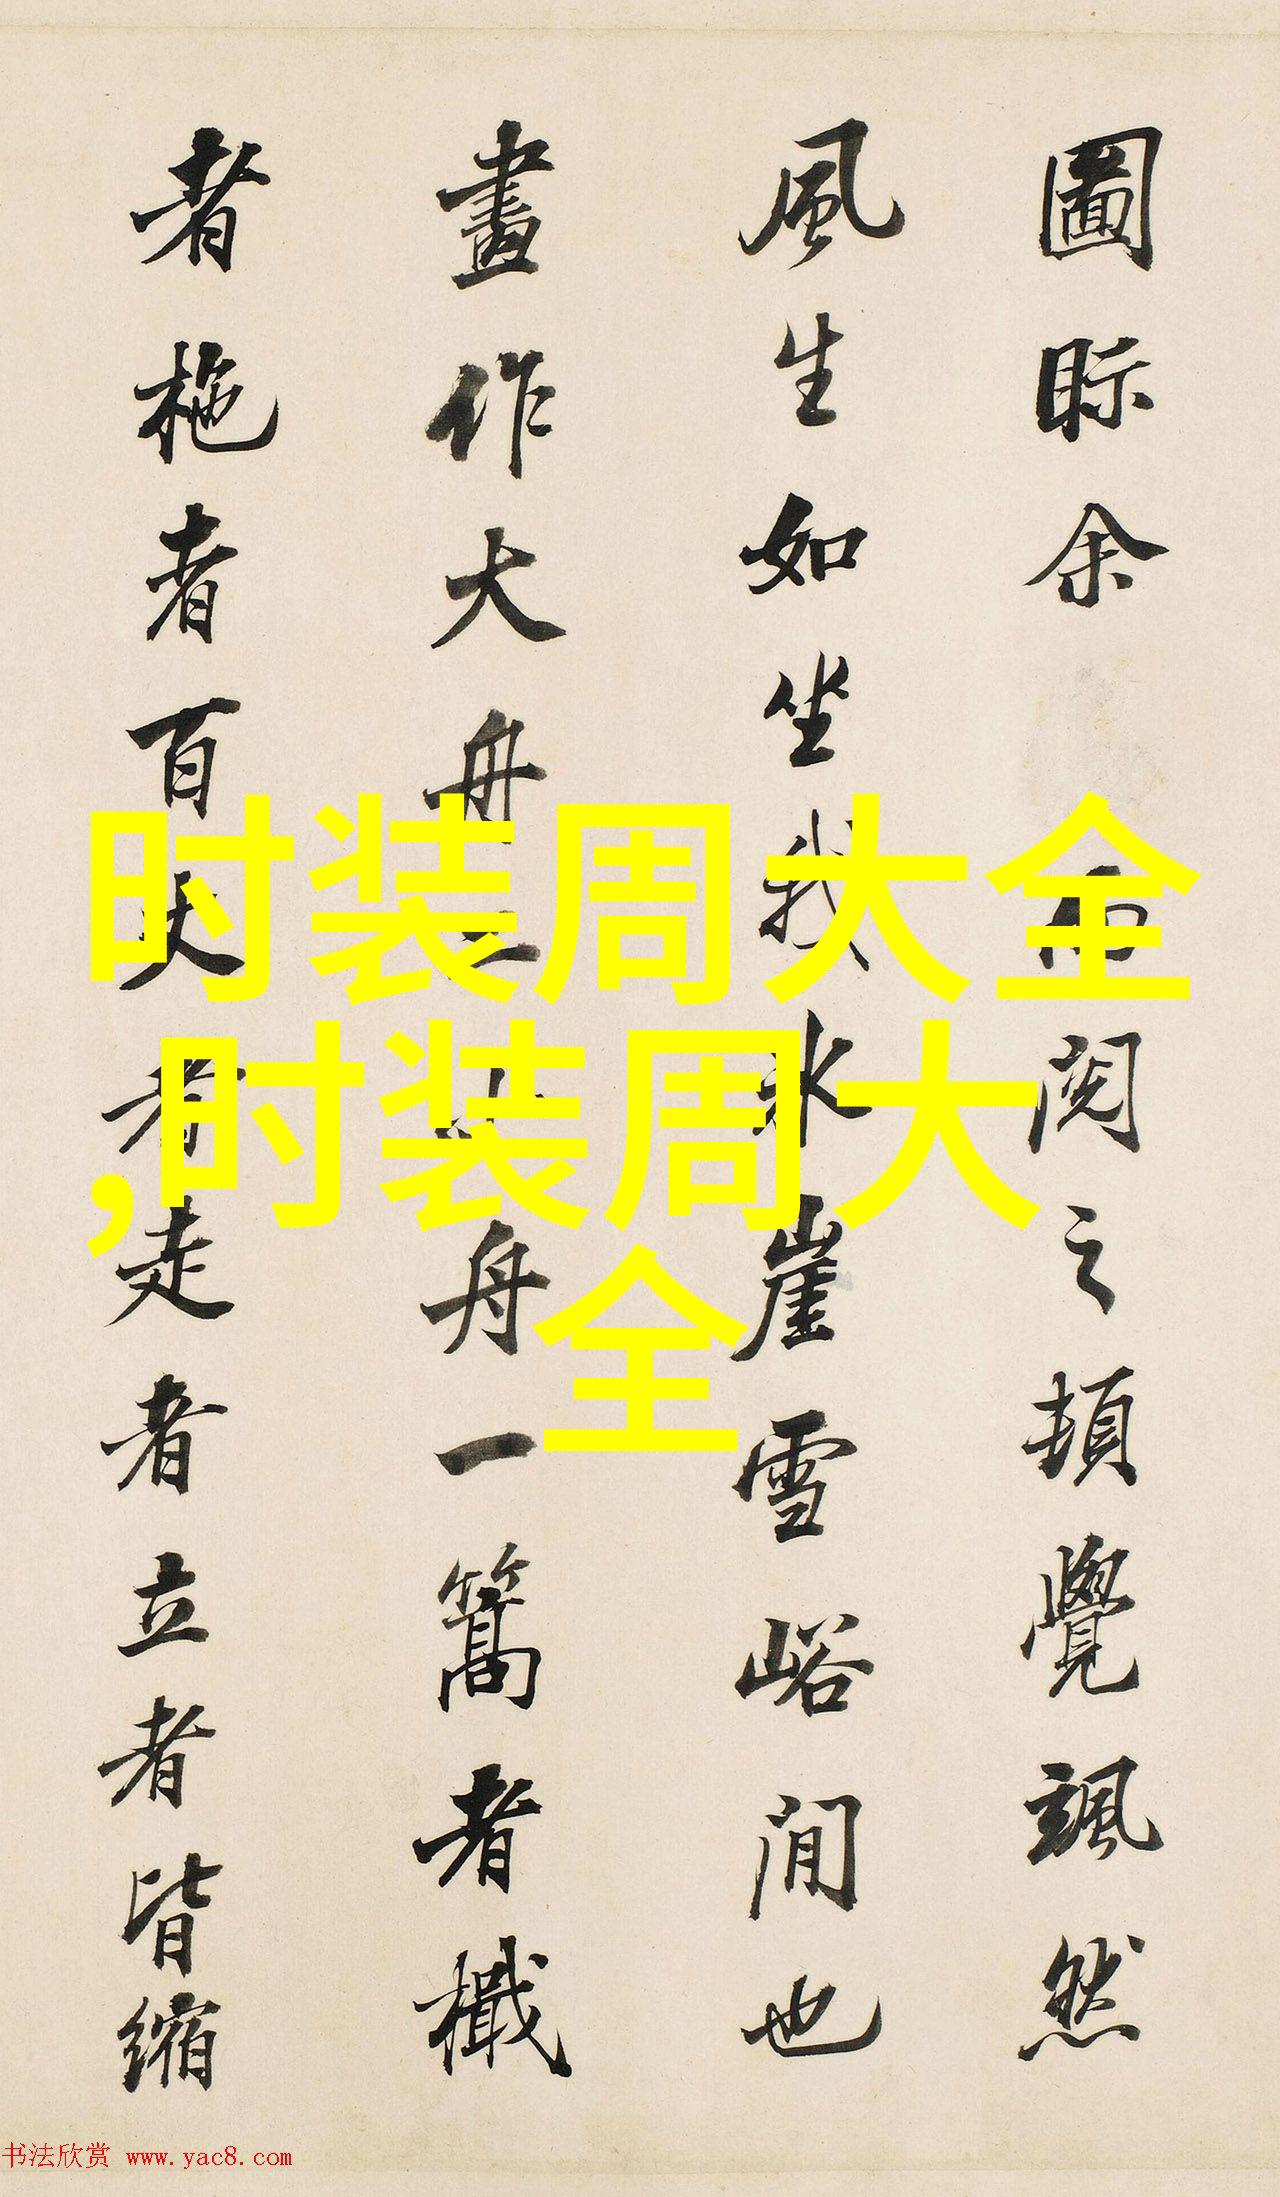 圖眎余
閱之頓覺颯然
風生如坐我冰崖雪峪間也
畫作大舟
舟一篙者檝
者柂者百丈者走者立者皆縮
时装周大全
,时装周大
全
书法欣赏 www.yac8.com